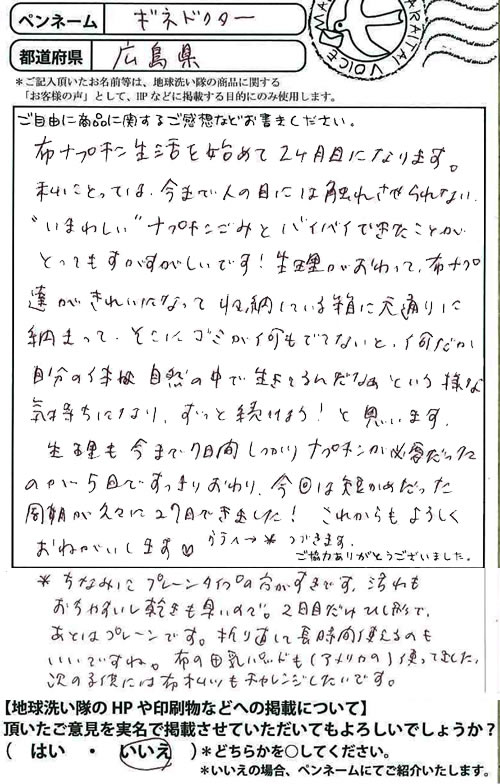 ペンネーム ギネドクター
都道府県 広島県
MA ARAITAI VOICE
*ご記入頂いたお名前等は、地球洗い隊の商品に関する
「お客様の声」として、HPなどに掲載する目的にのみ使用します。
ご自由に商品に関するご感想などお書きください。
布ナプキン生活を始めて2ヶ月目になります。
私にとっては、今まで人の目には触れさせられない、
"いまわしい"ナプキンごみとバイバイできたことが
とってもすがすがしいです!生理がおわって、布ナプ
達がきれいになって収納している箱に元通りに
納まって、そこにゴミが何もでてないと、何だか
自分の体は自然の中で生きてるんだなぁという様な
気持ちになり、ずっと続けよう!と思います。
生理も今まで7日間しっかりナプキンが必要だった
のが5日ですっきりおわり、今回は短かめだった
周期が久々に27日できました!これからもよろしく
おねがいします♡ ウラへ→* つづきます。
ご協力ありがとうございました。
*ちなみにプレーンタイプの方がすきです。汚れも
おちやすいし乾きも早いので。2日目だけひし形で、
あとはプレーンです。折り返して長時間使えるのも
いいですね。布の母乳パッドも(アメリカの)使ってました。
次の子供には布おむつもチャレンジしたいです。
【地球洗い隊のHPや印刷物などへの掲載について】
頂いたご意見を実名で掲載させていただいてもよろしいでしょうか?
( はい ・ いいえ )*どちらかを○してください。
*いいえの場合、ペンネームにてご紹介いたします。